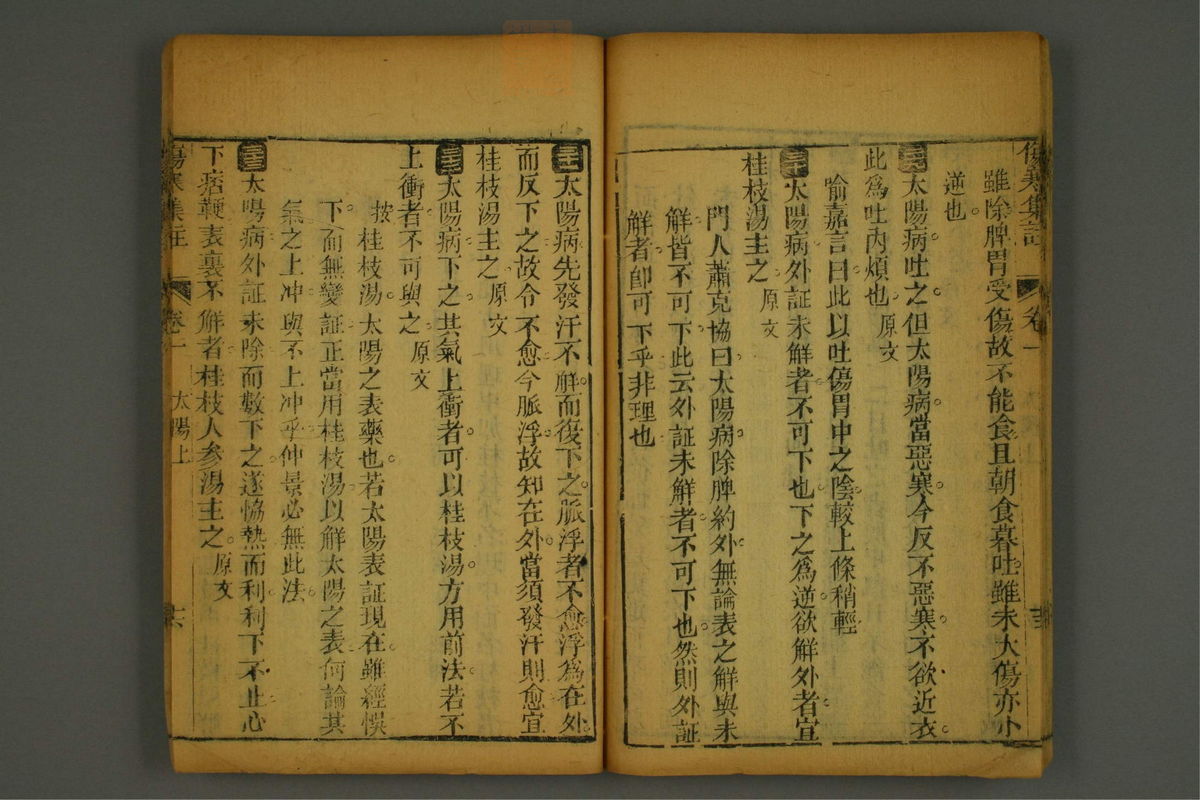 傷寒集註 卷一
雖除脾胃受傷故不能食且朝食暮吐雖未大傷亦小
逆也
太陽病吐之但太陽病當惡寒今反不惡寒不欲近衣
此爲吐內煩也 原文
喻嘉言曰此以吐傷胃中之陰較上條稍輕
三十 太陽病外証未解者不可下也下之爲逆欲解外者宜
桂枝湯主之 原文
門人蕭克協曰太陽病除脾約外無論表之解與未
解皆不可下此云外証未解者不可下也然則外証
解者卽可下乎非理也
三十一 太陽病先發汗不解而復下之脈浮者不愈浮爲在外
而反下之故令不愈今脈浮故知在外當須發汗則愈宜
桂枝湯主之 原文
三十二 太陽病下之其氣上衝者可以桂枝湯方用前法若不
上衝者不可與之 原文
按桂枝湯太陽之表藥也若太陽表証現在雖經悞
下而無變証正當用桂枝湯以解太陽之表何論其
氣之上冲與不上冲乎仲景必無此法
三十三 太陽病外証未除而數下之遂恊熱而利利下不止心
下痞鞕表裏不解者桂枝人參湯主之 原文
傷寒集註 卷一 太陽上 十六